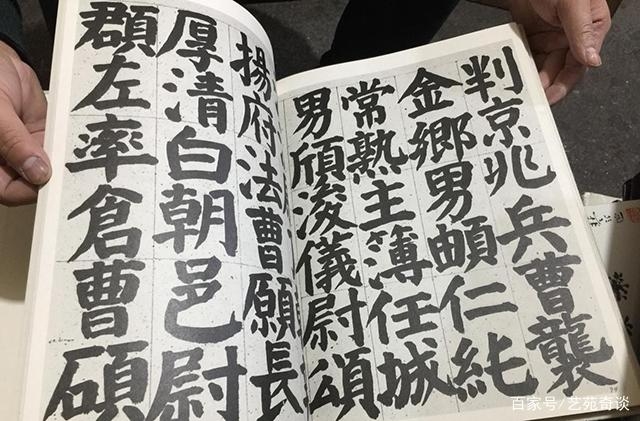 判京兆兵曹襲
金鄉男頔仁純
常熟主簿任城
男頎浚儀尉頌
揚府法曹願長
厚清白朝邑尉
頵左率倉曹碩
百家号/艺苑奇谈